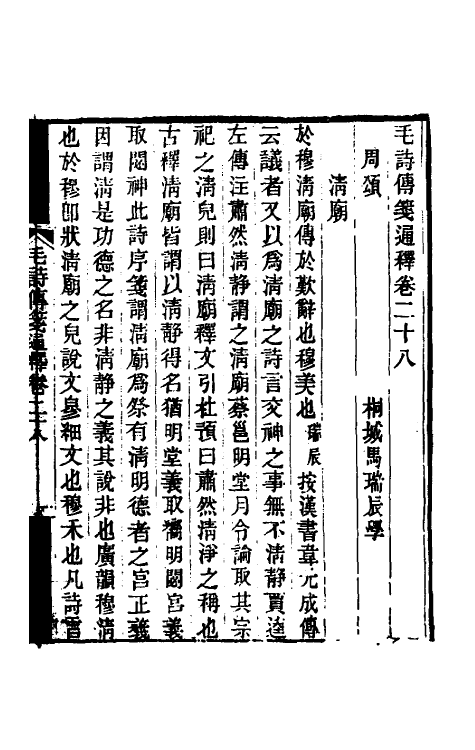 毛詩傳箋通釋卷二十八
周頌　桐城馬瑞辰學
淸廟
於穆淸廟傳於歎辭也穆美也瑞辰按漢書韋元成傳
云議者又以爲淸廟之詩言交神之事無不淸靜賈逵
左傳注肅然淸靜謂之淸廟蔡邕明堂月令論取其宗
祀之淸皃則曰淸廟釋文引杜預曰肅然淸淨之稱也
古釋淸廟皆謂以淸靜得名猶明堂義取嚮明閟宮義
取閟神此詩序箋謂淸廟爲祭有淸明德者之宮正義
因謂淸是功德之名非淸靜之義其說非也廣韻穆淸
也於穆卽狀淸廟之皃說文㣎細文也穆禾也凡詩言
毛詩傳箋通釋卷二十八